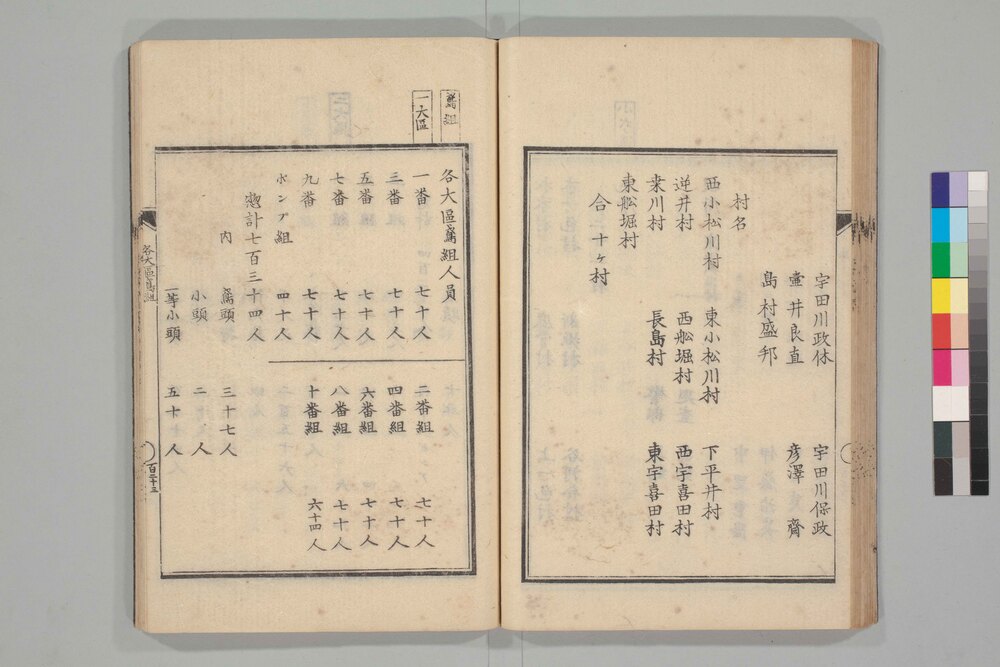 宇田川政休 宇田川保政
壷井良直 彦澤齋
島村盛邦
村名
西小松川村 東小松川村 下平井村
逆井村 西舩堀村 西宇喜田村
桒川村 長島村 東宇喜田村
東舩堀村
合十ヶ村
鳶組
一大區
各大區鳶組人員
一番 七十人 二番組 七十人
三番 七十人 四番組 七十人
五番 七十人 六番組 七十人
七番 七十人 八番組 七十人
九番 七十人 十番組 六十四人
水ンプ組 四十人
惣計七百三十四人
内 鳶頭 三十七人
小頭 二人
一等小頭 五十人
各大區鳶組